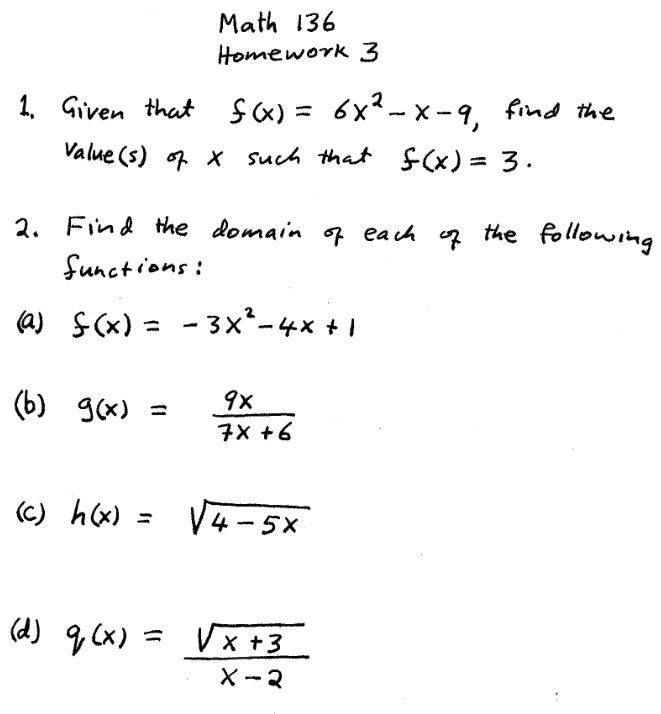 Math 136
Homework 3
1. Given that f(x) = 6x² - x - 9, find the
Value(s) of x such that f(x) = 3.
2. Find the domain of each of the following
functions:
(a) f(x) = -3x² - 4x + 1
(b) g(x) = 9x / 7x + 6
(c) h(x) = √4 - 5x
(d) q(x) = √x + 3 / x - 2